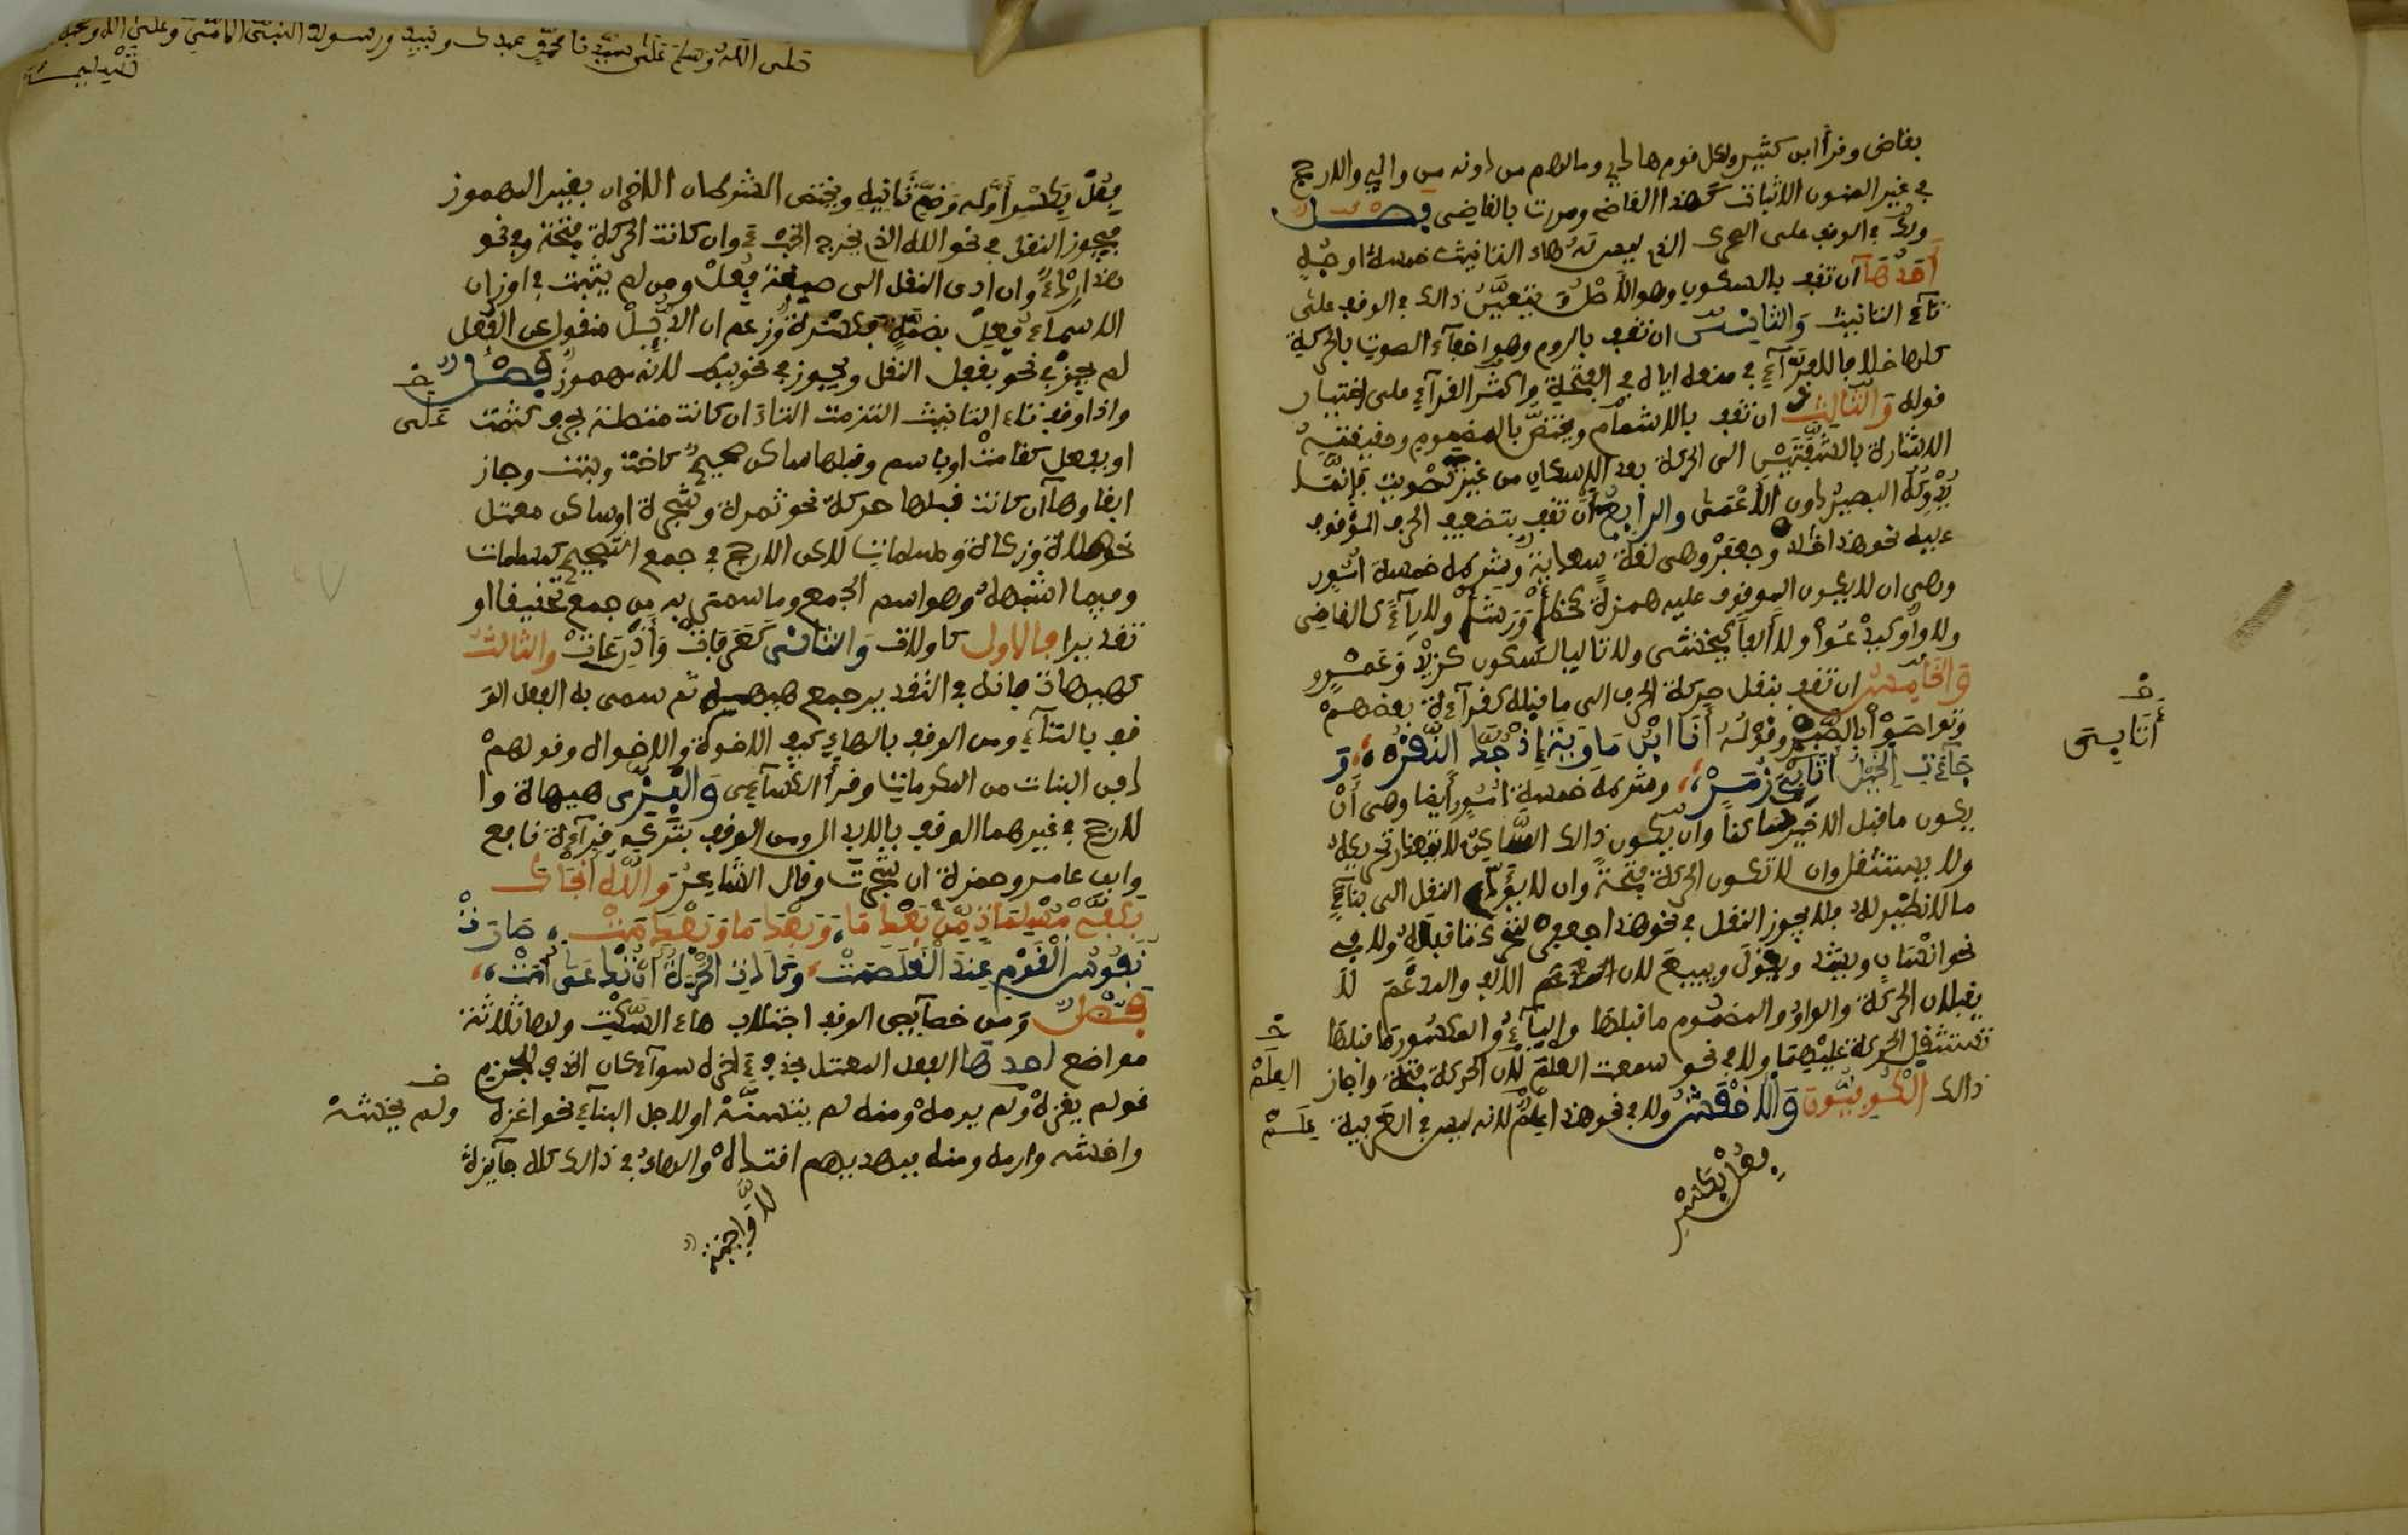 بقاض وقرأ ابن كثير ولكل قوم هادي وما لهم من دونه من والي والارجح
في غير المنون الاثبات كهذا القاضي ومررت بالقاضي فصل
ولك في الوقف على المحرك الذي ليس هاء التانيث خمسة اوجه
أحدها أن تقف بالسكون وهو الأصل ويتعين ذالك في الوقف على
تاء التانيث والثاني ان تقف بالروم وهو اخفاء الصوت بالحركة
كلها خلافا للفراء في منعه اياه في الفتحة واكثر القراء على اختيار
قوله والثالث ان تقف بالاشمام ويختص بالمضموم وحقيقته
الاشارة بالشفتين الى الحركة بعد الاسكان من غير تصويت فإنما
يدركه البصير دون الأعمى والرابع أن تقف بتضعيف الحرف الموقوف
عليه نحو هذا خالد وجعفر وهي لغة سعدية وشرطه خمسة امور
وهي ان لا يكون الموقوف عليه همزة كخطإ ورشإ ولا ياء كالقاضي
ولا واو كيدعو ولا ألفا كيخشى ولا تاليا لسكون كزيد وعمرو
والخامس ان تقف بنقل حركة الحرف الى ما قبله كقراءة بعضهم
وتواصوا بالصبر وقوله أنا ابن ماوية إذ جد النقر، و
جاءت الخيل أثابي زمر، وشرطه خمسة امور أيضا وهي أن
خ
أثابي
يكون ما قبل الاخير ساكنا وان يكون ذالك الساكن لا يتعذر تحريكه
ولا يستثقل وان لا تكون الحركة فتحة وان لا يؤدي النقل الى بناء
ما لا نظير له فلا يجوز النقل في نحو هذا جعفر لتحرك ما قبله ولا في
نحو انسان ويشد ويقول ويبيع لان الالف والمدغم لا
يقبلان الحركة والواو المضموم ما قبلها والياء المكسور ما قبلها
تستثقل الحركة عليهما ولا في نحو سمعت العلم لان الحركة فتحة واجاز
خ
العلم
ذالك الكوفيون والاخفش ولا في نحو هذا علم لانه ليس في العربية
علم
فعل بكسر
صلى الله وسلم على سيدنا محمد عبدك ونبيك ورسولك النبي الامي وعلى اله وصحبه
تسليما
فعل بكسر أوله وضم ثانيه ويختص الشرطان الاخيران بغير المهموز
فيجوز النقل في نحو الله الذي يخرج الخبء وان كانت الحركة فتحة وفي نحو
هذا ردء وان ادى النقل الى صيغة فعل ومن لم يثبت في اوزان
الاسماء فعل بضمة فكسرة وزعم ان الدئل منقول عن الفعل
لم يجز في نحو بقفل النقل ويجوز في نحو ببطء لانه مهموز فصل
خ
على
واذا وقف تاء التانيث التزمت التاء ان كانت متصلة بحرف كثمت
او بفعل كقامت او باسم وقبلها ساكن صحيح كاخت وبنت وجاز
ابقاوها ان كانت قبلها حركة نحو ثمرة وشجرة او ساكن معتل
نحو صلاة وزكاة ومسلمات لاكن الارجح في جمع التصحيح كمسلمات
وفيما اشبهه وهو اسم الجمع وما سمي به من جمع تحقيقا او
تقديرا فالاول كاولات والثاني كعرفات وأذرعات والثالث
كهيهات فانه في التقدير جمع هيهية ثم سمي به الفعل الو
قف بالتاء ومن الوقف بالهاء كيف الاخوة والاخواه وقولهم
دفن البناه من المكرماه وقرأ الكسائي والبزي هيهاه وا
لارجح في غيرهما الوقف بالهاء ومن الوقف بتركه قراءة نافع
وابن عامر وحمزة ان شجرت وقال الشاعر والله أنجاك
بكفي مسلمت، من بعد ما، وبعد ما وبعد مت، صارت
نفوس القوم عند الغلصمت، وكادت الحرة أن تدعى أمت،
فصل ومن خصائص الوقف اجتلاب هاء السكت ولها ثلاثة
مواضع احدها الفعل المعتل بحذف اخره سواء كان الحذف للجزم
نحو لم يغزه ولم يرمه ومنه لم يتسنه او لاجل البناء نحو اغزه
خ
ولم يخشه
واخشه وارمه ومنه فبهداهم اقتده والهاء في ذالك كله جائزة
لا واجبة